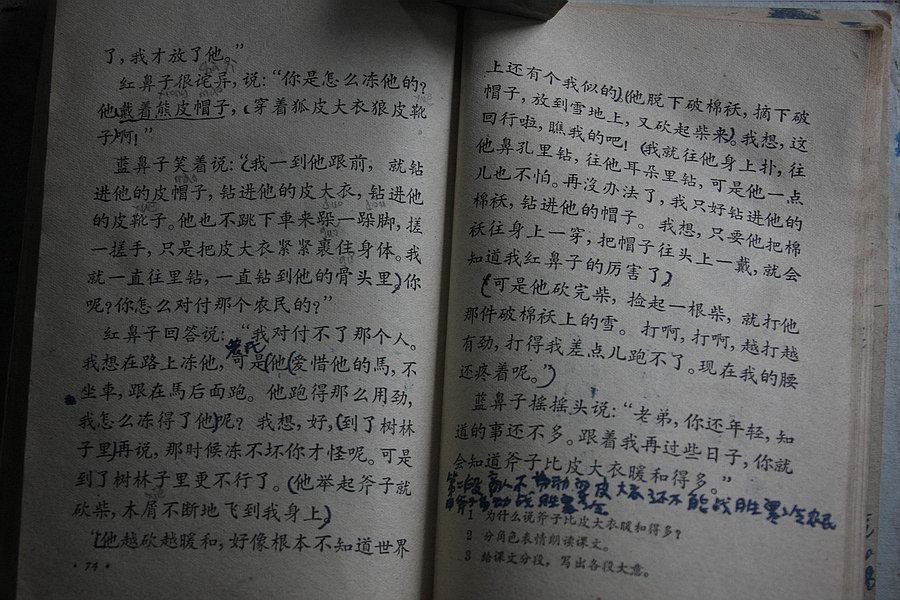 了，我才放了他。”
红鼻子很诧异，说：“你是怎么冻他的？
他戴着熊皮帽子，穿着狐皮大衣狼皮靴
子啊！”
蓝鼻子笑着说：“我一到他跟前，就钻
进他的皮帽子，钻进他的皮大衣，钻进他
的皮靴子。他也不跳下車来跺一跺脚，搓
一搓手，只是把皮大衣紧紧裹住身体。我
就一直往里钻，一直钻到他的骨头里。你
呢？你怎么对付那个农民的？”
红鼻子回答说：“我对付不了那个人。
农民
我想在路上冻他，可是他爱惜他的馬，不
坐車，跟在馬后面跑。他跑得那么用劲，
我怎么冻得了他呢？我想，好，到了树林
子里再说，那时候冻不坏你才怪呢。可是
到了树林子里更不行了。他举起斧子就
砍柴，木屑不断地飞到我身上。
“他越砍越暖和，好像根本不知道世界
·74·
上还有个我似的。他脱下破棉袄，摘下破
帽子，放到雪地上，又砍起柴来。我想，这
回行啦，瞧我的吧！我就往他身上扑，往
他鼻孔里钻，往他耳朵里钻，可是他一点
儿也不怕。再沒办法了，我只好钻进他的
棉袄，钻进他的帽子。我想，只要他把棉
袄往身上一穿，把帽子往头上一戴，就会
知道我红鼻子的厉害了。
“可是他砍完柴，捡起一根柴，就打他
那件破棉袄上的雪。打啊，打啊，越打越
有劲，打得我差点儿跑不了。现在我的腰
还疼着呢。”
蓝鼻子摇摇头说：“老弟，你还年轻，知
道的事还不多。跟着我再过些日子，你就
会知道斧子比皮大衣暖和得多。”
第二段 商人不劳动 穿皮大衣还不能战胜寒冷 农民
用斧子劳动战胜寒冷
1 为什么说斧子比皮大衣暖和得多？
2 分角色表情朗读课文。
3 给课文分段，写出各段大意。